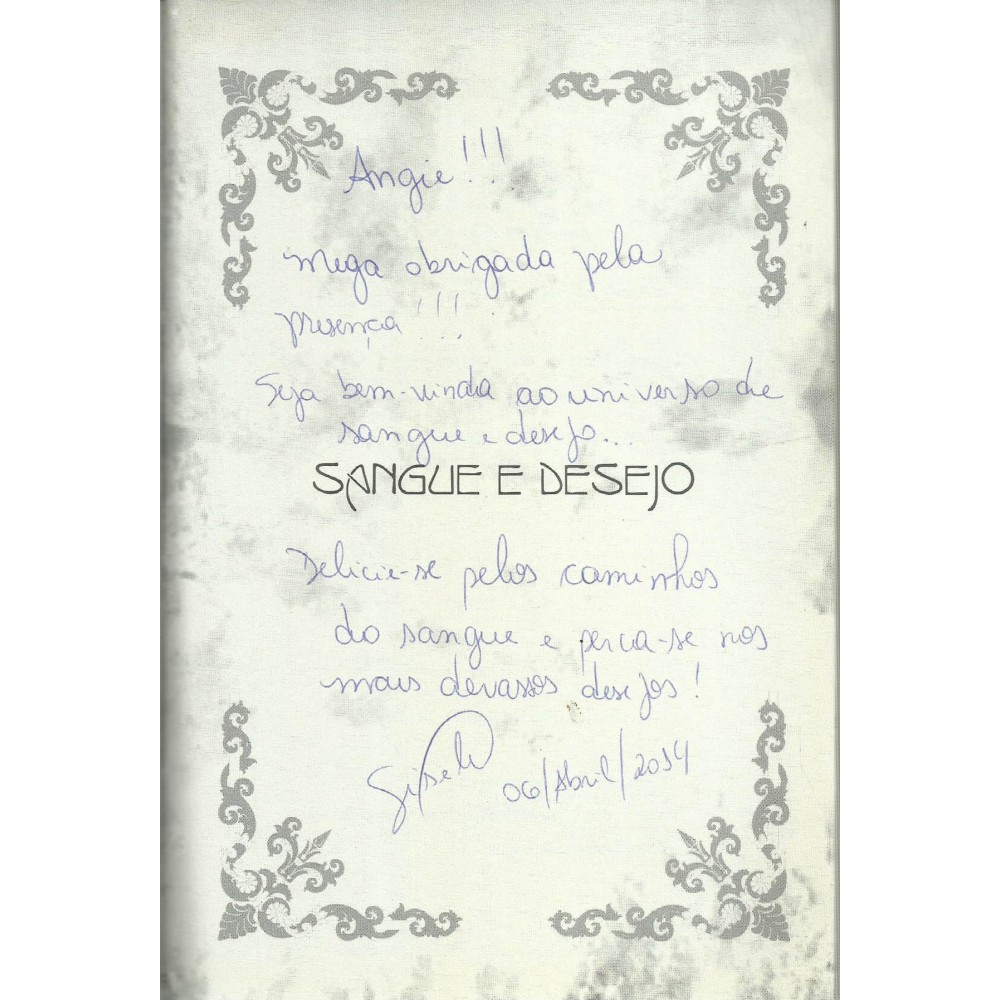 Angie!!!
mega obrigada pela
presença!!!
Seja bem-vinda ao universo de
sangue e desejo...
SANGUE E DESEJO
Delicie-se pelos caminhos
do sangue e perca-se nos
mais devassos desejos!
06/Abril/2014